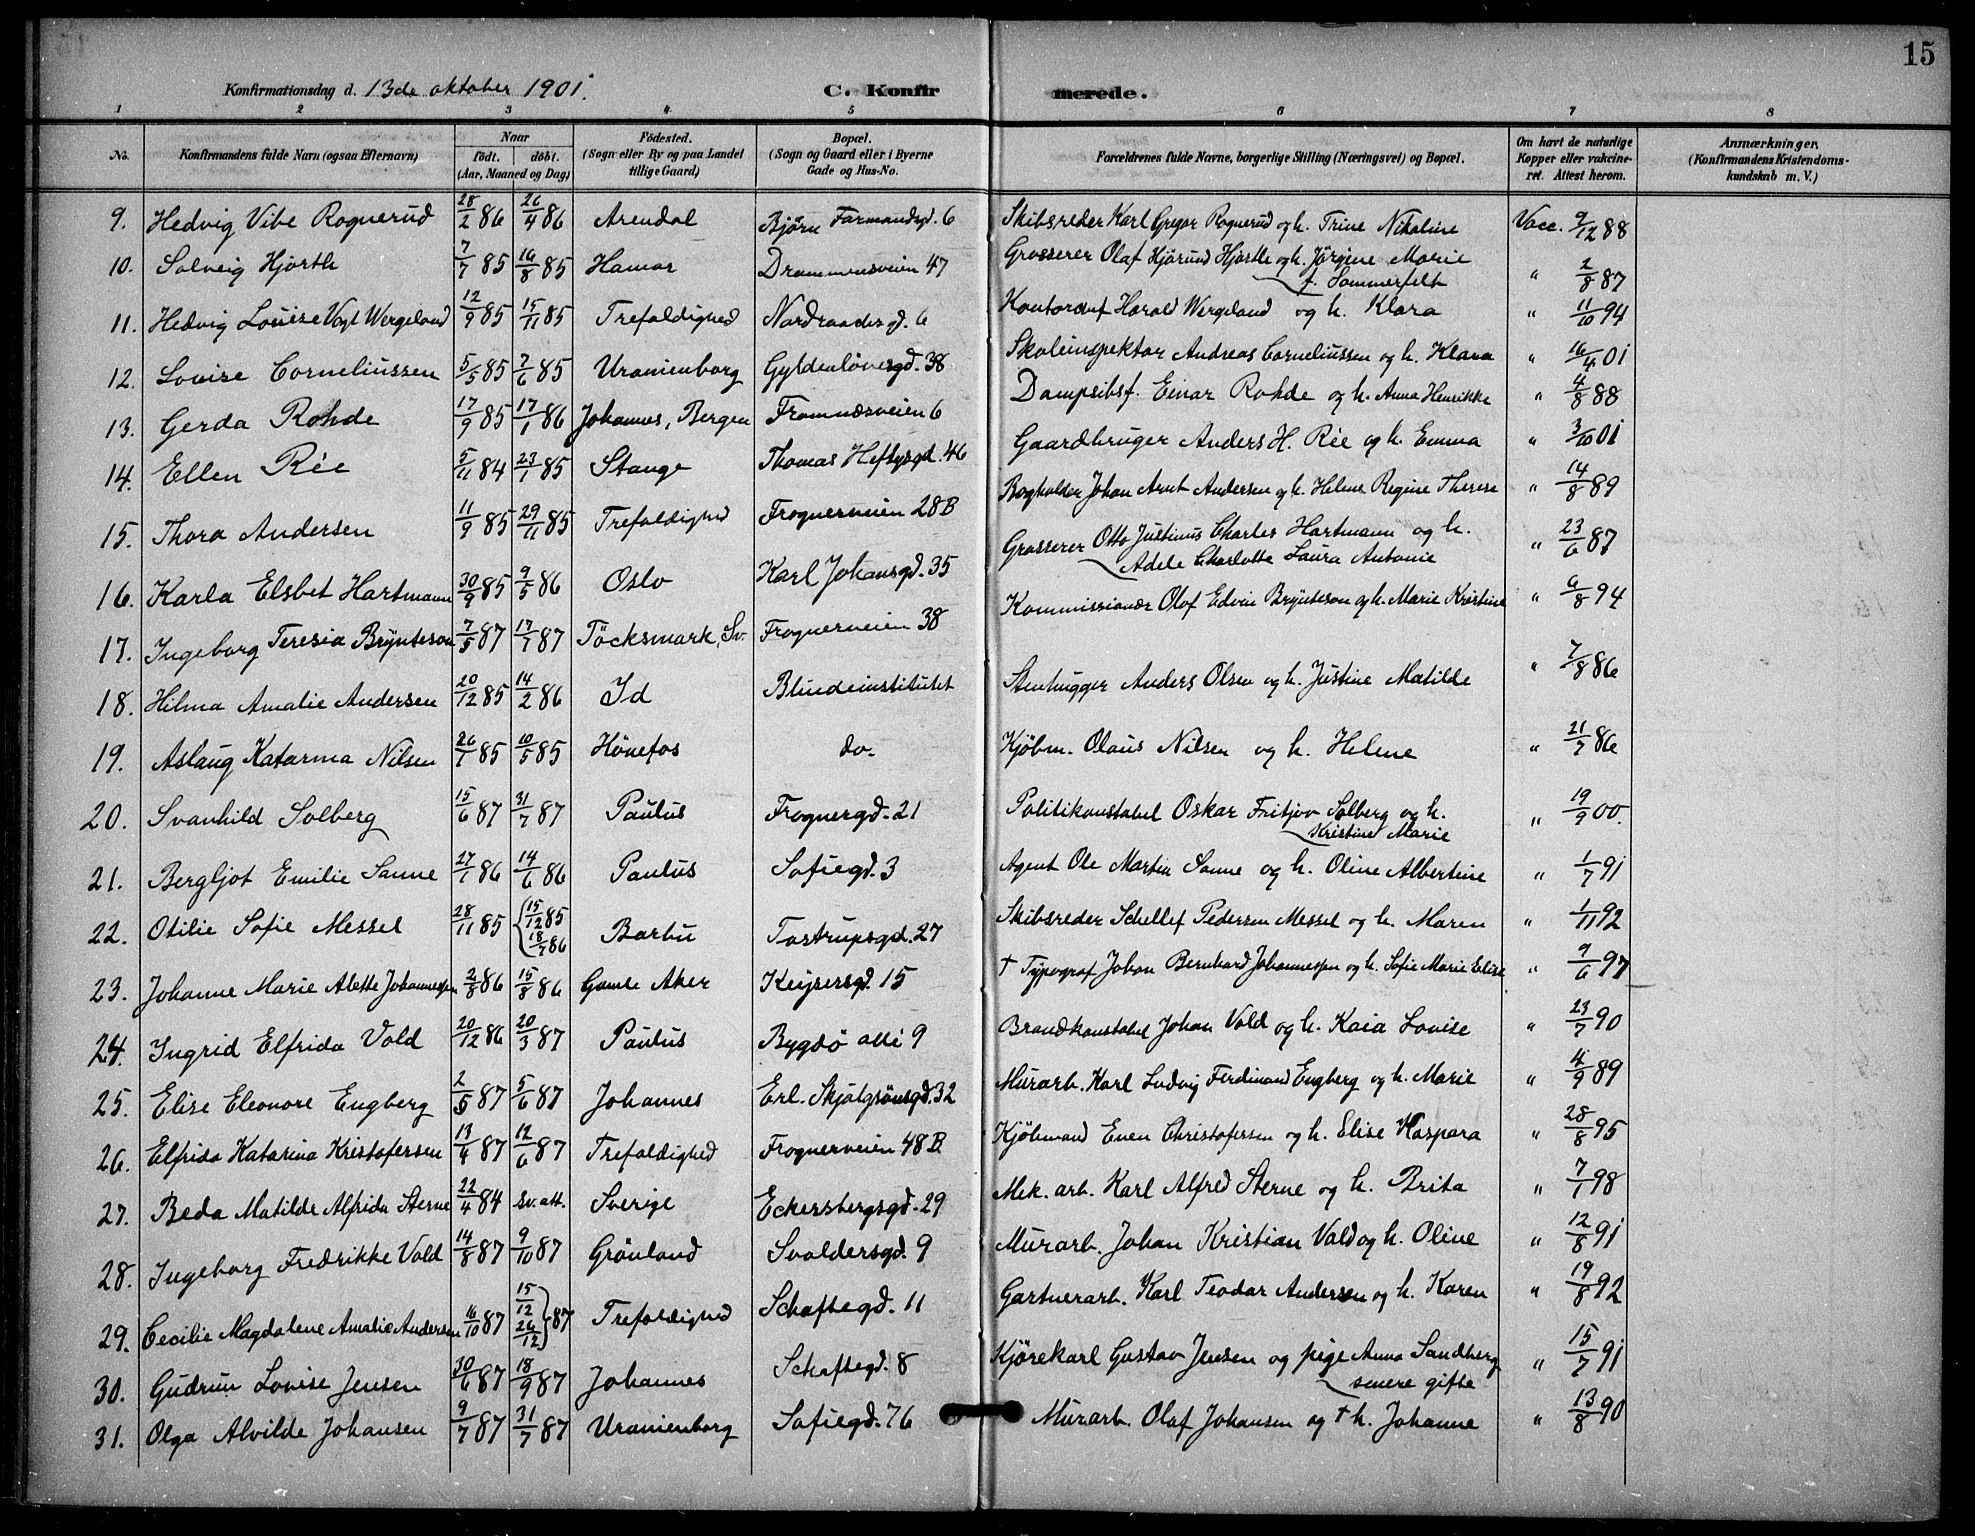 15
Konfirmationsdag d. 13de oktober 1901. C. Konfirmerede.
1 2 3 4 5 6 7 8
No. Konfirmandens fulde Navn (ogsaa Efternavn) Naar født. døbt. (Aar, Maaned og Dag) Fødested. (Sogn eller By og paa Landet tillige Gaard) Bopæl. (Sogn og Gaard eller i Byerne Gade og Hus-No.) Forældrenes fulde Navne, borgerlige Stilling (Næringsvei) og Bopæl. Om havt de naturlige Kopper eller vakcineret. Attest herom. Anmærkninger. (Konfirmandens Kristendomskundskab m. V.)
9. Hedvig Vibe Rognerud 28/2 86 26/4 86 Arendal Bjørn Farmandsgd. 6 Skibsreder Karl Gregor Rognerud og h. Trine Nikoline Vacc. 9/12 88
10. Solveig Hjorth 7/7 85 16/8 85 Hamar Drammensveien 47 Grosserer Olaf Hjørund Hjorth og h. Jørgine Marie f. Sommerfelt " 2/8 87
11. Hedvig Louise Vogt Wergeland 12/9 85 15/11 85 Trefoldighed Nordraaksgd. 6 Kontorchef Harald Wergeland og h. Klara " 11/10 94
12. Lovise Corneliussen 5/5 85 7/6 85 Uranienborg Gyldenløvesgd. 38 Skoleinspektør Andreas Corneliussen og h. Klara " 16/4 01
13. Gerda Rohde 17/9 85 17/1 86 Johannes, Bergen Framnæsveien 6 Dampsibsf. Einar Rohde og h. Anna Henrikke " 4/8 88
14. Ellen Rée 5/11 84 23/1 85 Stange Thomas Heftysgd. 46 Gaardbruger Anders H. Rée og h. Emma " 3/10 01
15. Thora Andersen 11/9 85 29/11 85 Trefoldighed Frognerveien 28B Bogholder Johan Arnt Andersen og h. Helene Regine Therese " 14/8 89
16. Karla Elsbet Hartmann 30/9 85 9/5 86 Oslo Karl Johansgd. 35 Grosserer Otto Justinus Charles Hartmann og h. Adele Charlotte Laura Antonie " 23/6 87
17. Ingeborg Teresia Brynteson 7/5 87 17/7 87 Töcksmark, Sv. Frognerveien 38 Kommissionær Olof Edvin Brynteson og h. Marie Kristine " 6/8 94
18. Hilma Amalie Andersen 20/12 85 14/2 86 Id Blindeinstitutet Stenhugger Anders Olsen og h. Justine Matilde " 7/8 86
19. Aslaug Katarina Nilsen 26/1 85 10/5 85 Hönefos do. Kjøbm. Olaus Nilsen og h. Helene " 21/7 86
20. Svanhild Solberg 15/6 87 31/7 87 Paulus Frognergd. 21 Politikonstabel Oskar Fritjov Solberg og h. Kristine Marie " 19/9 00.
21. Bergljot Emilie Sanne 27/1 86 14/6 86 Paulus Sofiegd. 3 Agent Ole Martin Sanne og h. Oline Albertine " 1/7 91
22. Otilie Sofie Messel 28/11 85 15/12 85 18/7 86 Barbu Tostrupsgd. 27 Skibsreder Schellef Pedersen Messel og h. Maren " 1/11 92
23. Johanne Marie Alette Johannessen 2/8 86 15/8 86 Gamle Aker Keysersgd. 15 † Typograf Johan Bernhard Johannessen og h. Sofie Marie Elise " 9/6 97
24. Ingrid Elfrida Vold 20/12 86 20/3 87 Paulus Bygdø alle 9 Brandkonstabel Johan Vold og h. Kaia Lovise " 23/7 90
25. Elise Eleonore Engberg 2/5 87 5/6 87 Johannes Erl. Skjalgsönsgd. 32 Murarb. Karl Ludvig Ferdinand Engberg og h. Marie " 4/9 89
26. Elfrida Katarina Kristofersen 13/4 87 12/6 87 Trefoldighed Frognerveien 48B Kjöbmand Even Christofersen og h. Elise Kaspara " 28/8 95
27. Beda Matilde Alfrida Sterne 22/4 84 sv. att. Sverige Eckersbergsgd. 29 Mek. arb. Karl Alfred Sterne og h. Brita " 7/1 98
28. Ingeborg Fredrikke Vold 14/8 87 9/10 87 Grönland Svoldersgd. 9 Murarb. Johan Kristian Vold og h. Oline " 12/8 91
29. Cecilie Magdalene Amalie Andersen 16/10 87 15/12 26/12 87 Trefoldighed Schaftegd. 11 Gartnerarb. Karl Teodor Andersen og h. Karen " 19/8 92
30. Gudrun Lovise Jensen 30/6 87 18/9 87 Johannes Schaftegd. 8 Kjörekarl Gustav Jensen og pige Anna Sandberg senere gifte " 15/7 91
31. Olga Alvilde Johansen 9/7 87 31/7 87 Uranienborg Sofiegd. 76 Murarb. Olaf Johansen og † h. Johanne " 13/8 90